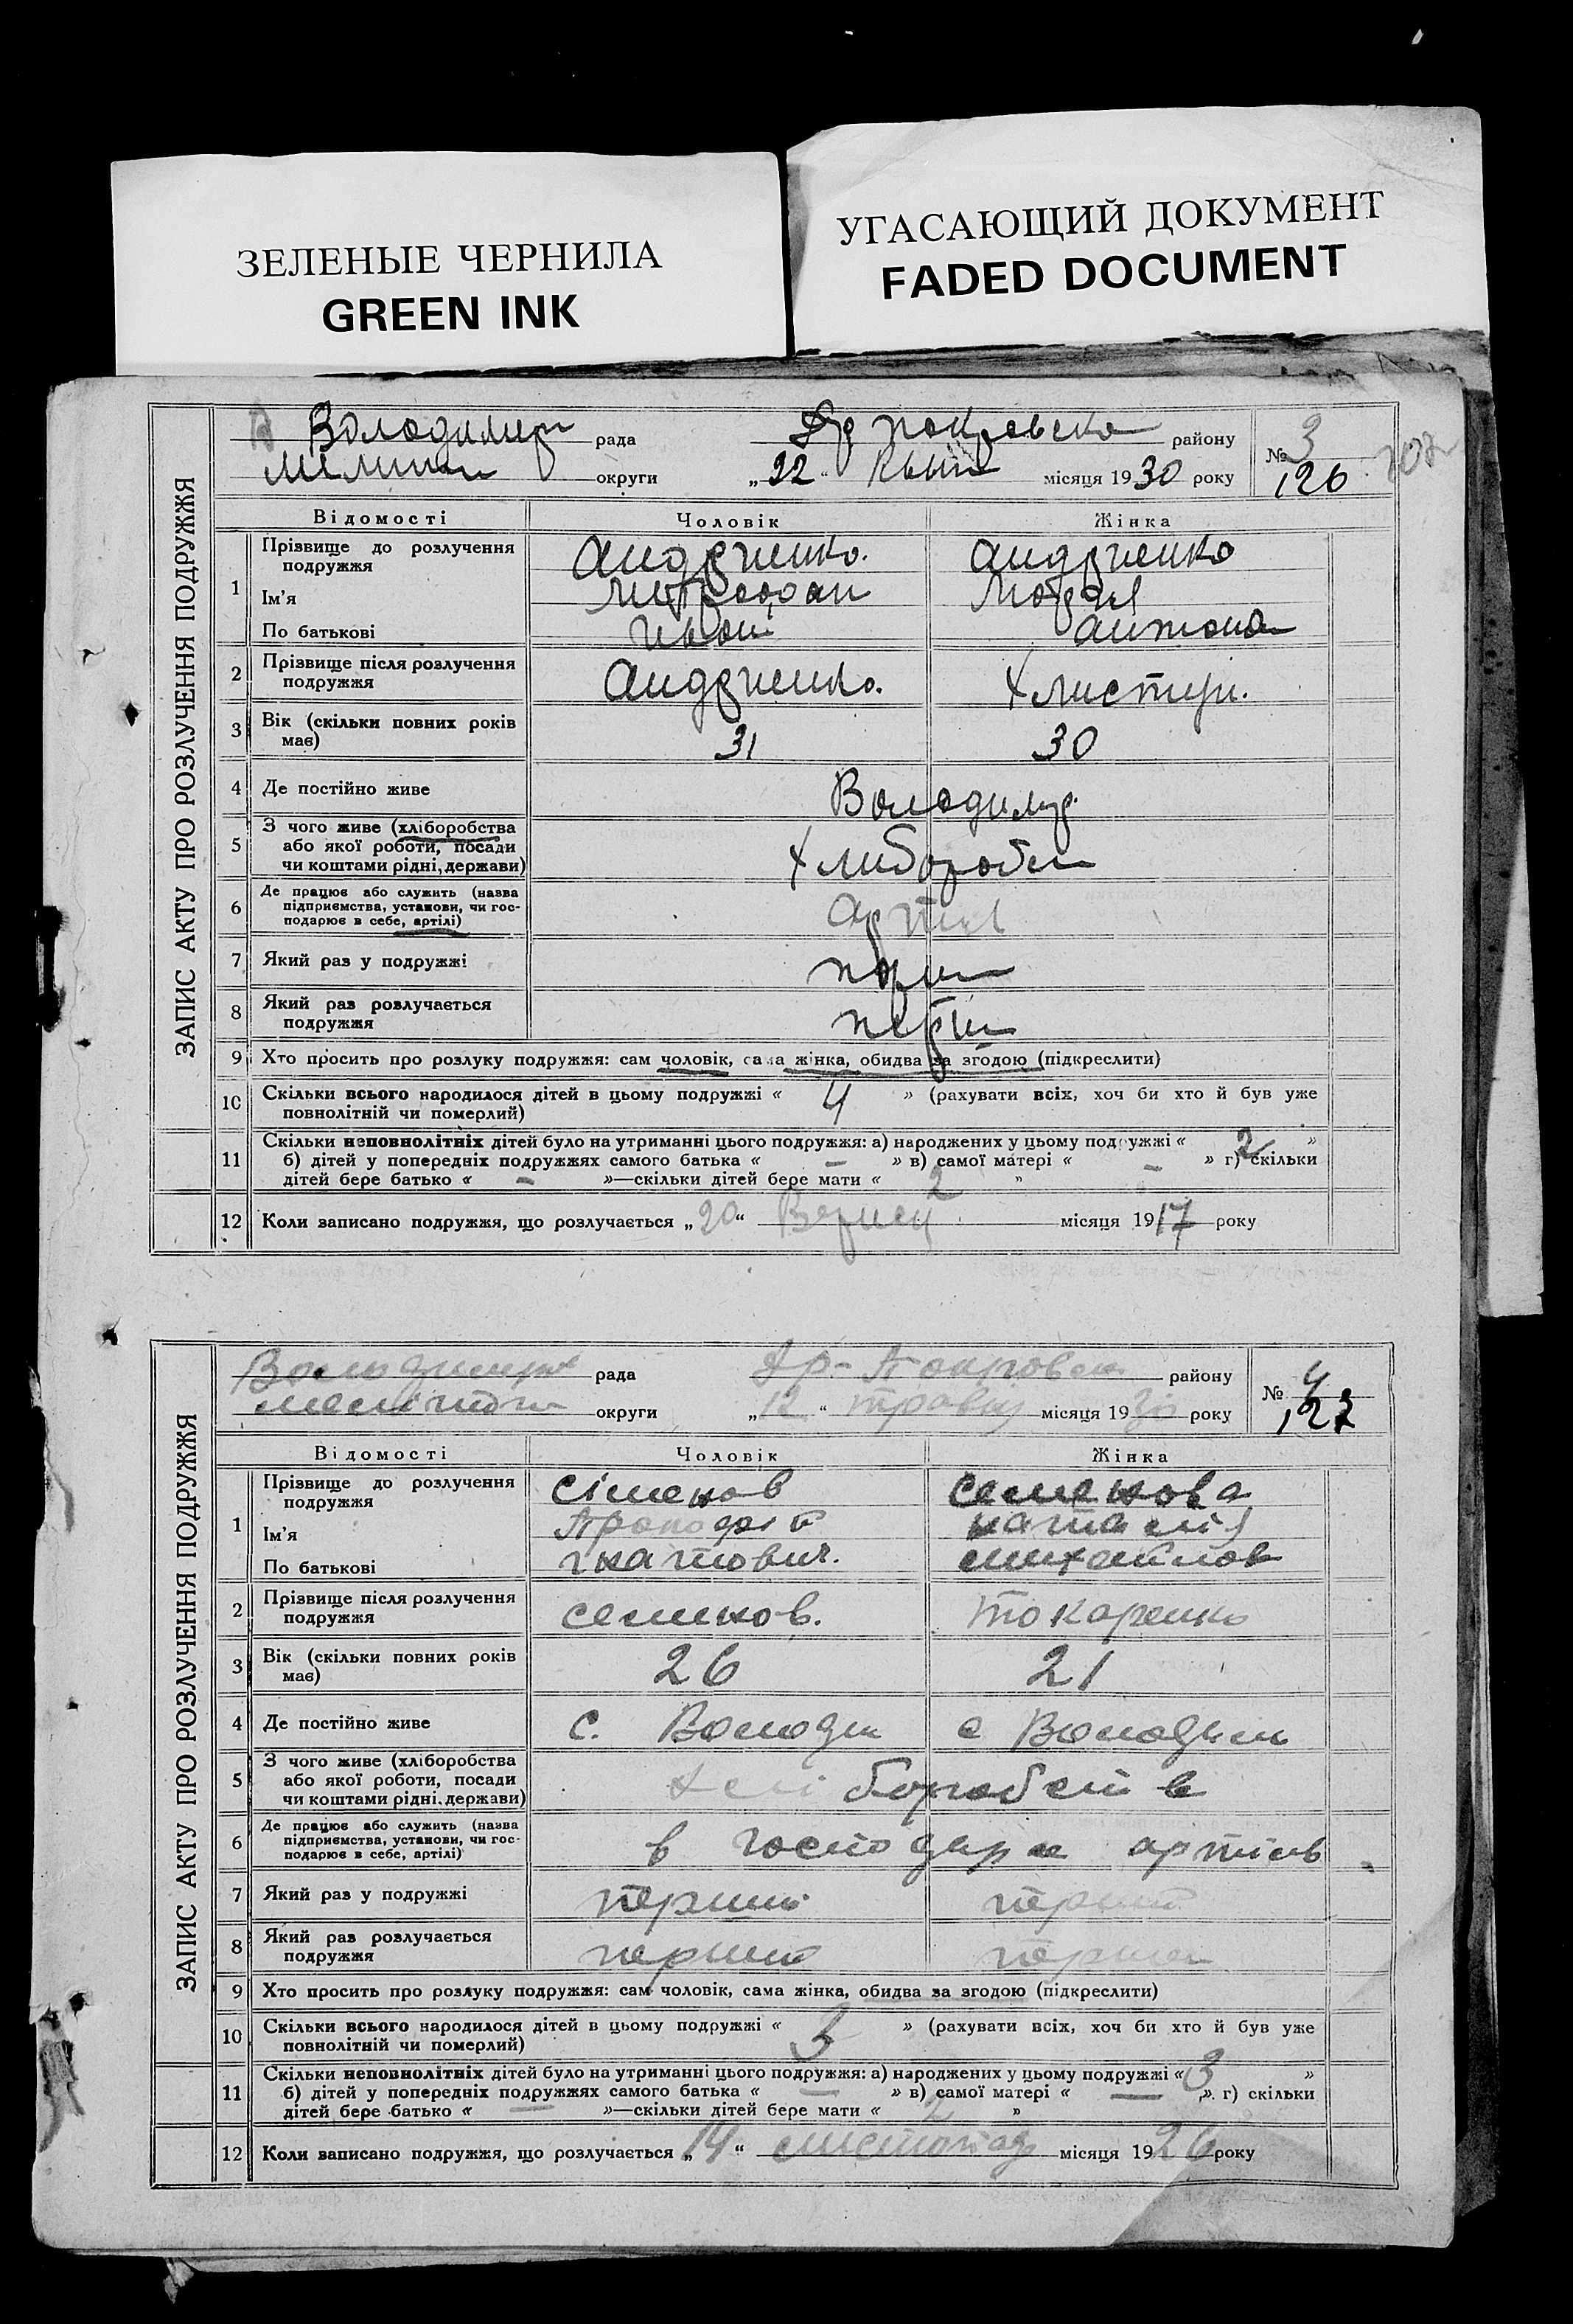 ЗЕЛЕНЫЕ ЧЕРНИЛА
GREEN INK
УГАСАЮЩИЙ ДОКУМЕНТ
FADED DOCUMENT
ЗАПИС АКТУ ПРО РОЗЛУЧЕННЯ ПОДРУЖЖЯ
Володимир рада покровско району № 3
округи „22“ місяця 1930 року 126
Відомості Чоловік Жінка
1 Прізвище до розлучення подружжя Андриенко. Андриенко
Ім'я Митрофан
По батькові Иван Антона
2 Прізвище після розлучення подружжя Андриенко.
3 Вік (скільки повних років має) 31 30
4 Де постійно живе Володимир
5 З чого живе (хліборобства
або якої роботи, посади
чи коштами рідні, держави)
6 Де працює або служить (назва
підприємства, установи, чи гос-
подарює в себе, артілі)
7 Який раз у подружжі
8 Який раз розлучається
подружжя перш
9 Хто просить про розлуку подружжя: сам чоловік, сама жінка, обидва за згодою (підкреслити)
10 Скільки всього народилося дітей в цьому подружжі « 4 » (рахувати всіх, хоч би хто й був уже
повнолітній чи померлий)
11 Скільки неповнолітніх дітей було на утриманні цього подружжя: а) народжених у цьому подружжі « 2 »
б) дітей у попередніх подружжях самого батька « – » в) самої матері « – » г) скільки
дітей бере батько « – »—скільки дітей бере мати « 2 »
12 Коли записано подружжя, що розлучається „20“ місяця 1917 року
ЗАПИС АКТУ ПРО РОЗЛУЧЕННЯ ПОДРУЖЖЯ
рада Покровск району № 4
округи „12“ травня місяця 1930 року 127
Відомості Чоловік Жінка
1 Прізвище до розлучення
подружжя Сіменов Семенова
Ім'я наталія
По батькові гнатович. михайлов
2 Прізвище після розлучення
подружжя семенов. Токаренко
3 Вік (скільки повних років
має) 26 21
4 Де постійно живе с. Володим с Володим
5 З чого живе (хліборобства
або якої роботи, посади
чи коштами рідні, держави) хліборобств
6 Де працює або служить (назва
підприємства, установи, чи гос-
подарює в себе, артілі) в господар
7 Який раз у подружжі перший перший
8 Який раз розлучається
подружжя перший
9 Хто просить про розлуку подружжя: сам чоловік, сама жінка, обидва за згодою (підкреслити)
10 Скільки всього народилося дітей в цьому подружжі « 3 » (рахувати всіх, хоч би хто й був уже
повнолітній чи померлий)
11 Скільки неповнолітніх дітей було на утриманні цього подружжя: а) народжених у цьому подружжі « 3 »
б) дітей у попередніх подружжях самого батька « — » в) самої матері « — ». г) скільки
дітей бере батько « — »—скільки дітей бере мати « 2 »
12 Коли записано подружжя, що розлучається „14“ листопад місяця 1926 року